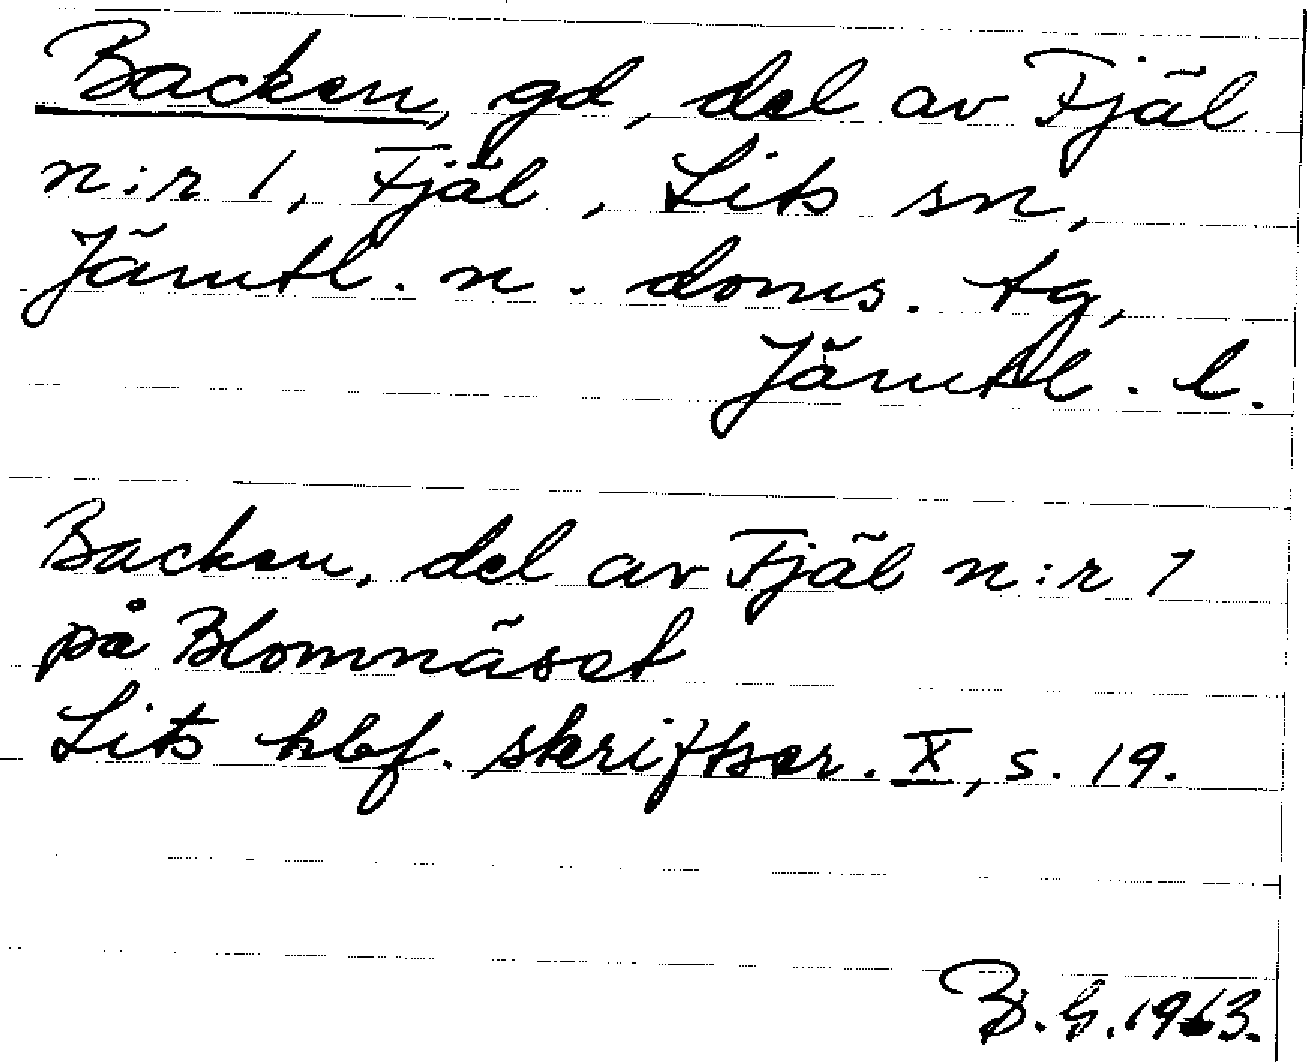 Backen, gd, del av Fjäl
n:r 1, Fjäl, Lits sn,
Jämtl. n. doms. tg,
Jämtl. l.
Backen, del av Fjäl n:r 1
på Blomnäset
Lits hbf. skriftser. X, s. 19.
B.G.1963.